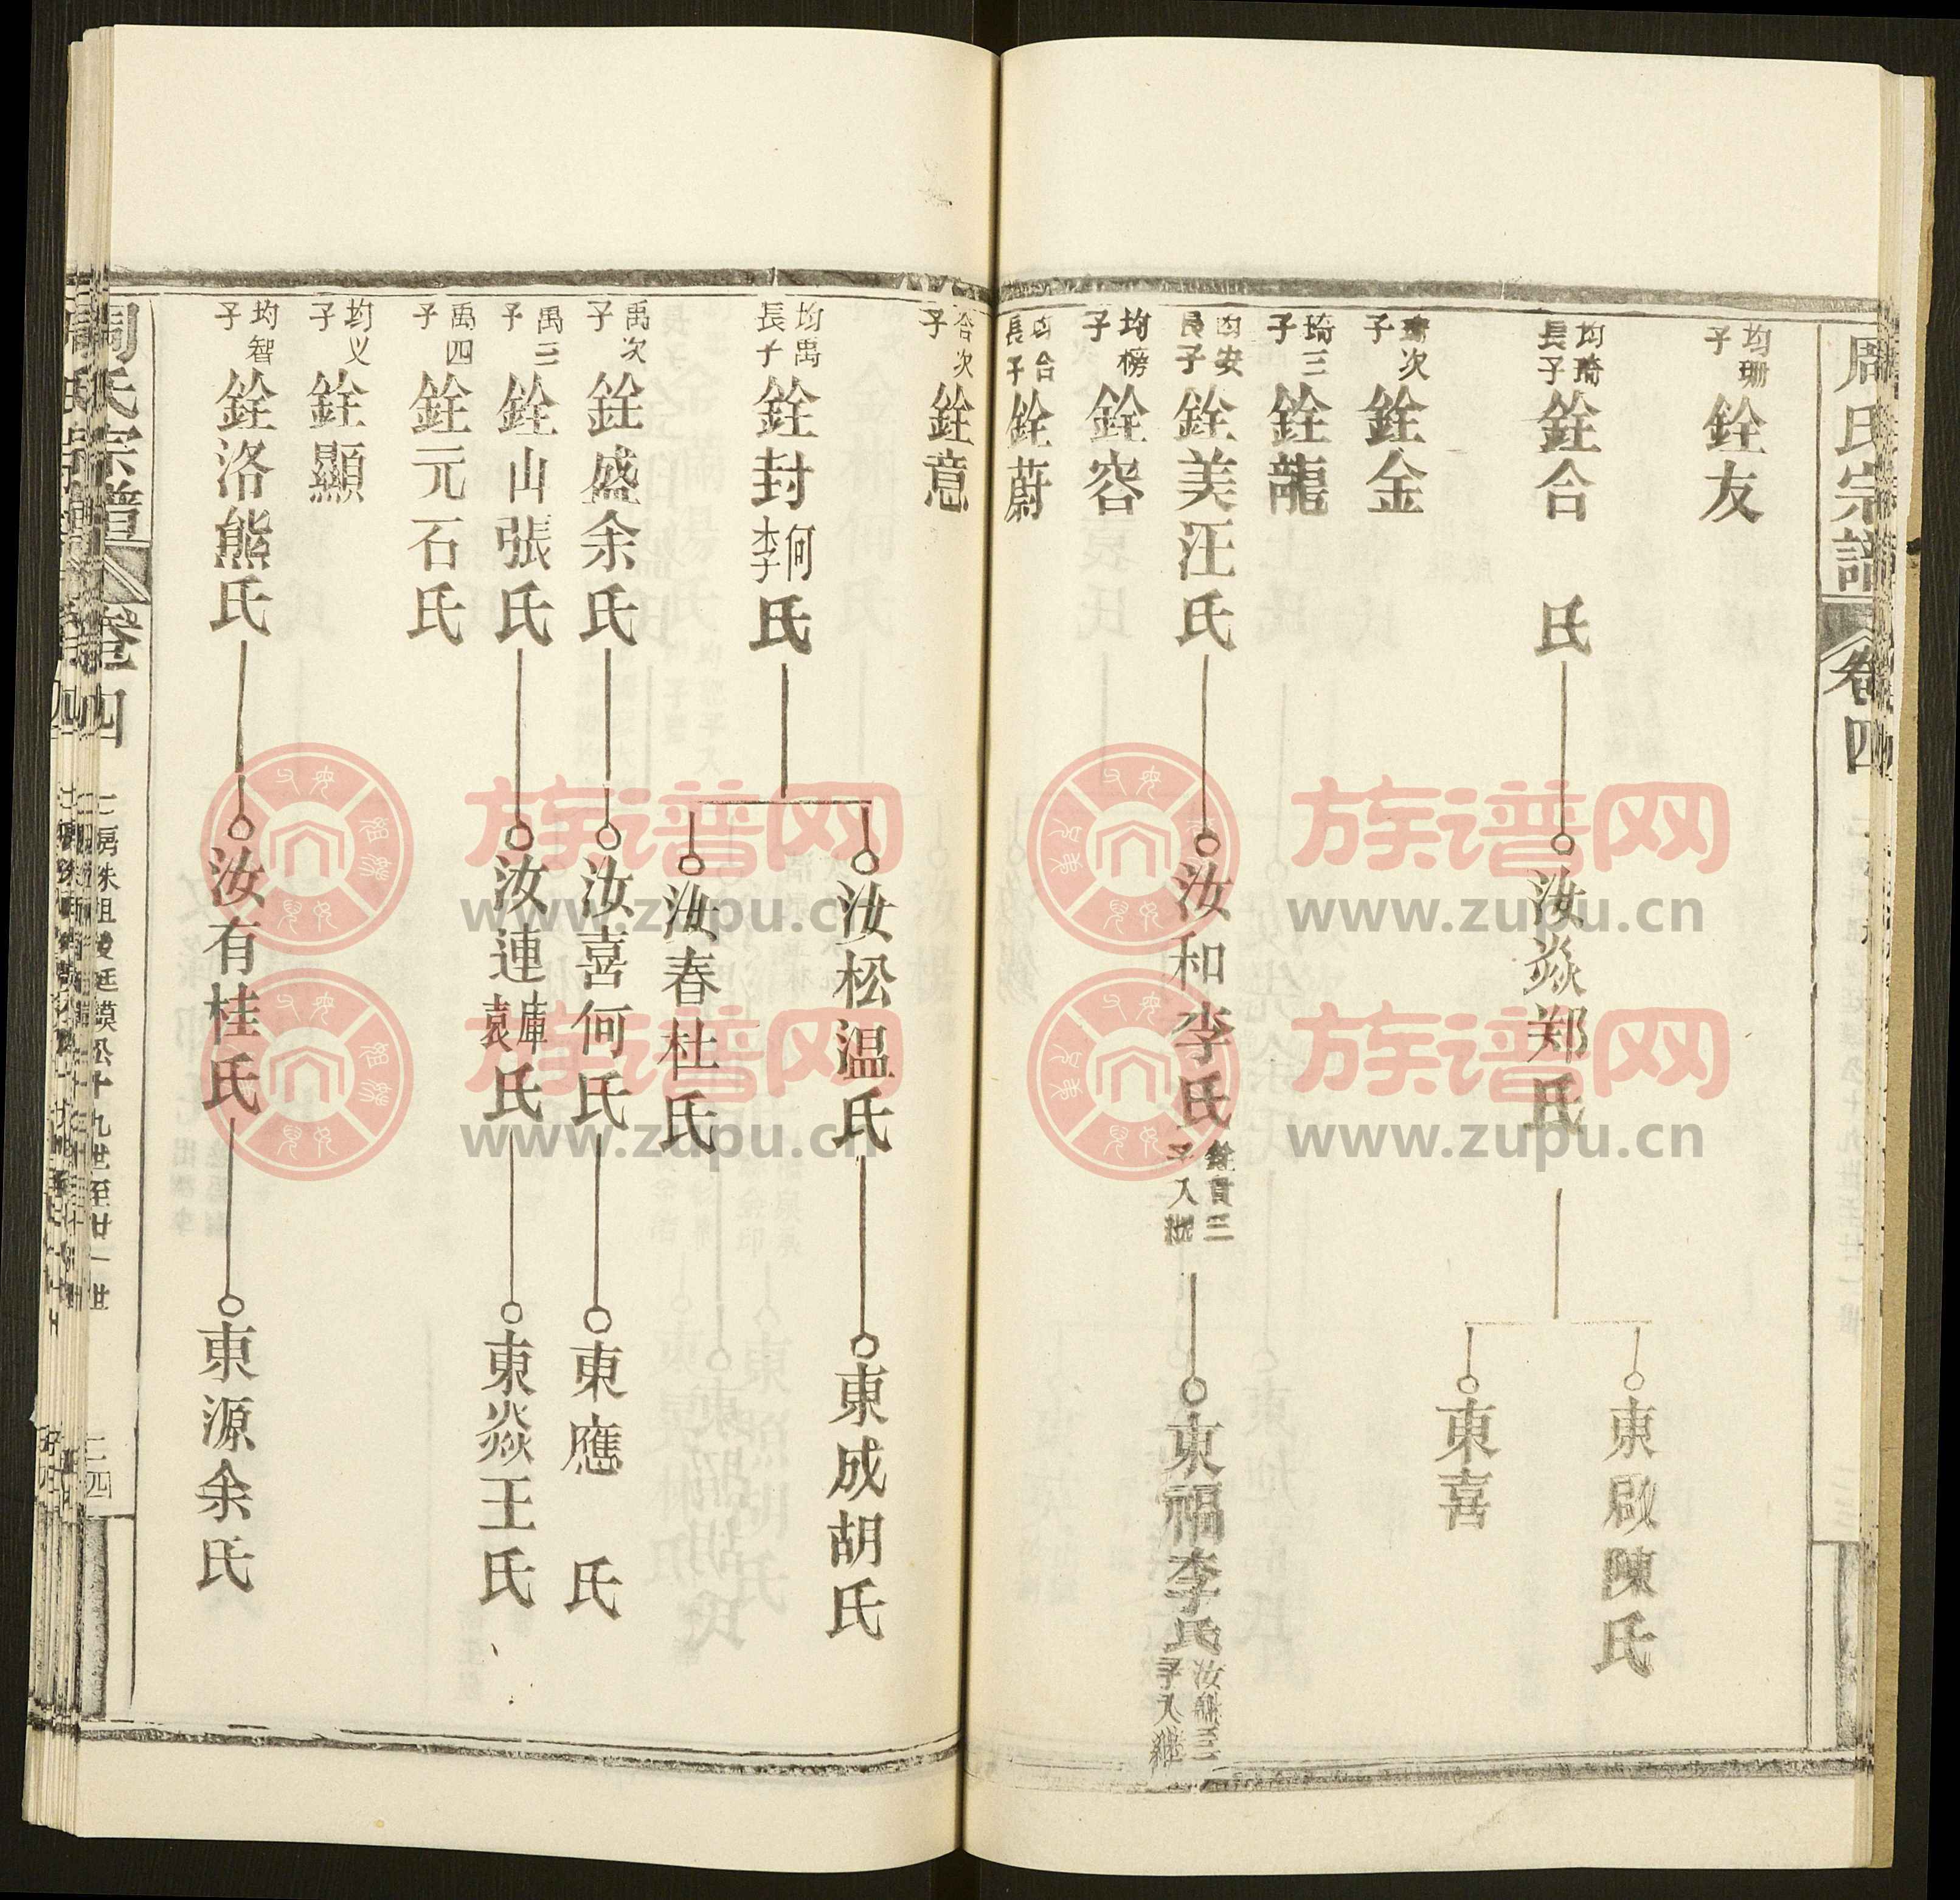 周氏宗譜
卷四
均珊子
銓友
均琦長子
銓合 氏
汝焱郑氏
東啟陳氏
東喜
琦次子
銓金
琦三子
銓龍
均安長子
銓美汪氏
汝和李氏
銓貢三子入繼
東福李氏
均榜子
銓容
均合長子
銓蔚
合次子
銓意
均禹長子
銓封何李氏
汝松温氏
東成胡氏
汝春杜氏
禹次子
銓盛余氏
汝喜何氏
東應 氏
禹三子
銓山張氏
汝連庫袁氏
東焱王氏
禹四子
銓元石氏
均义子
銓顯
均智子
銓洛熊氏
汝有桂氏
東源余氏
周氏宗譜
卷四
十九世至廿一世
二四
族谱网
www.zupu.cn
族谱网
www.zupu.cn
族谱网
www.zupu.cn
族谱网
www.zupu.cn